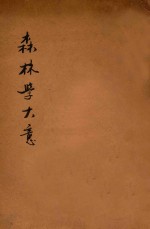 森林學大意